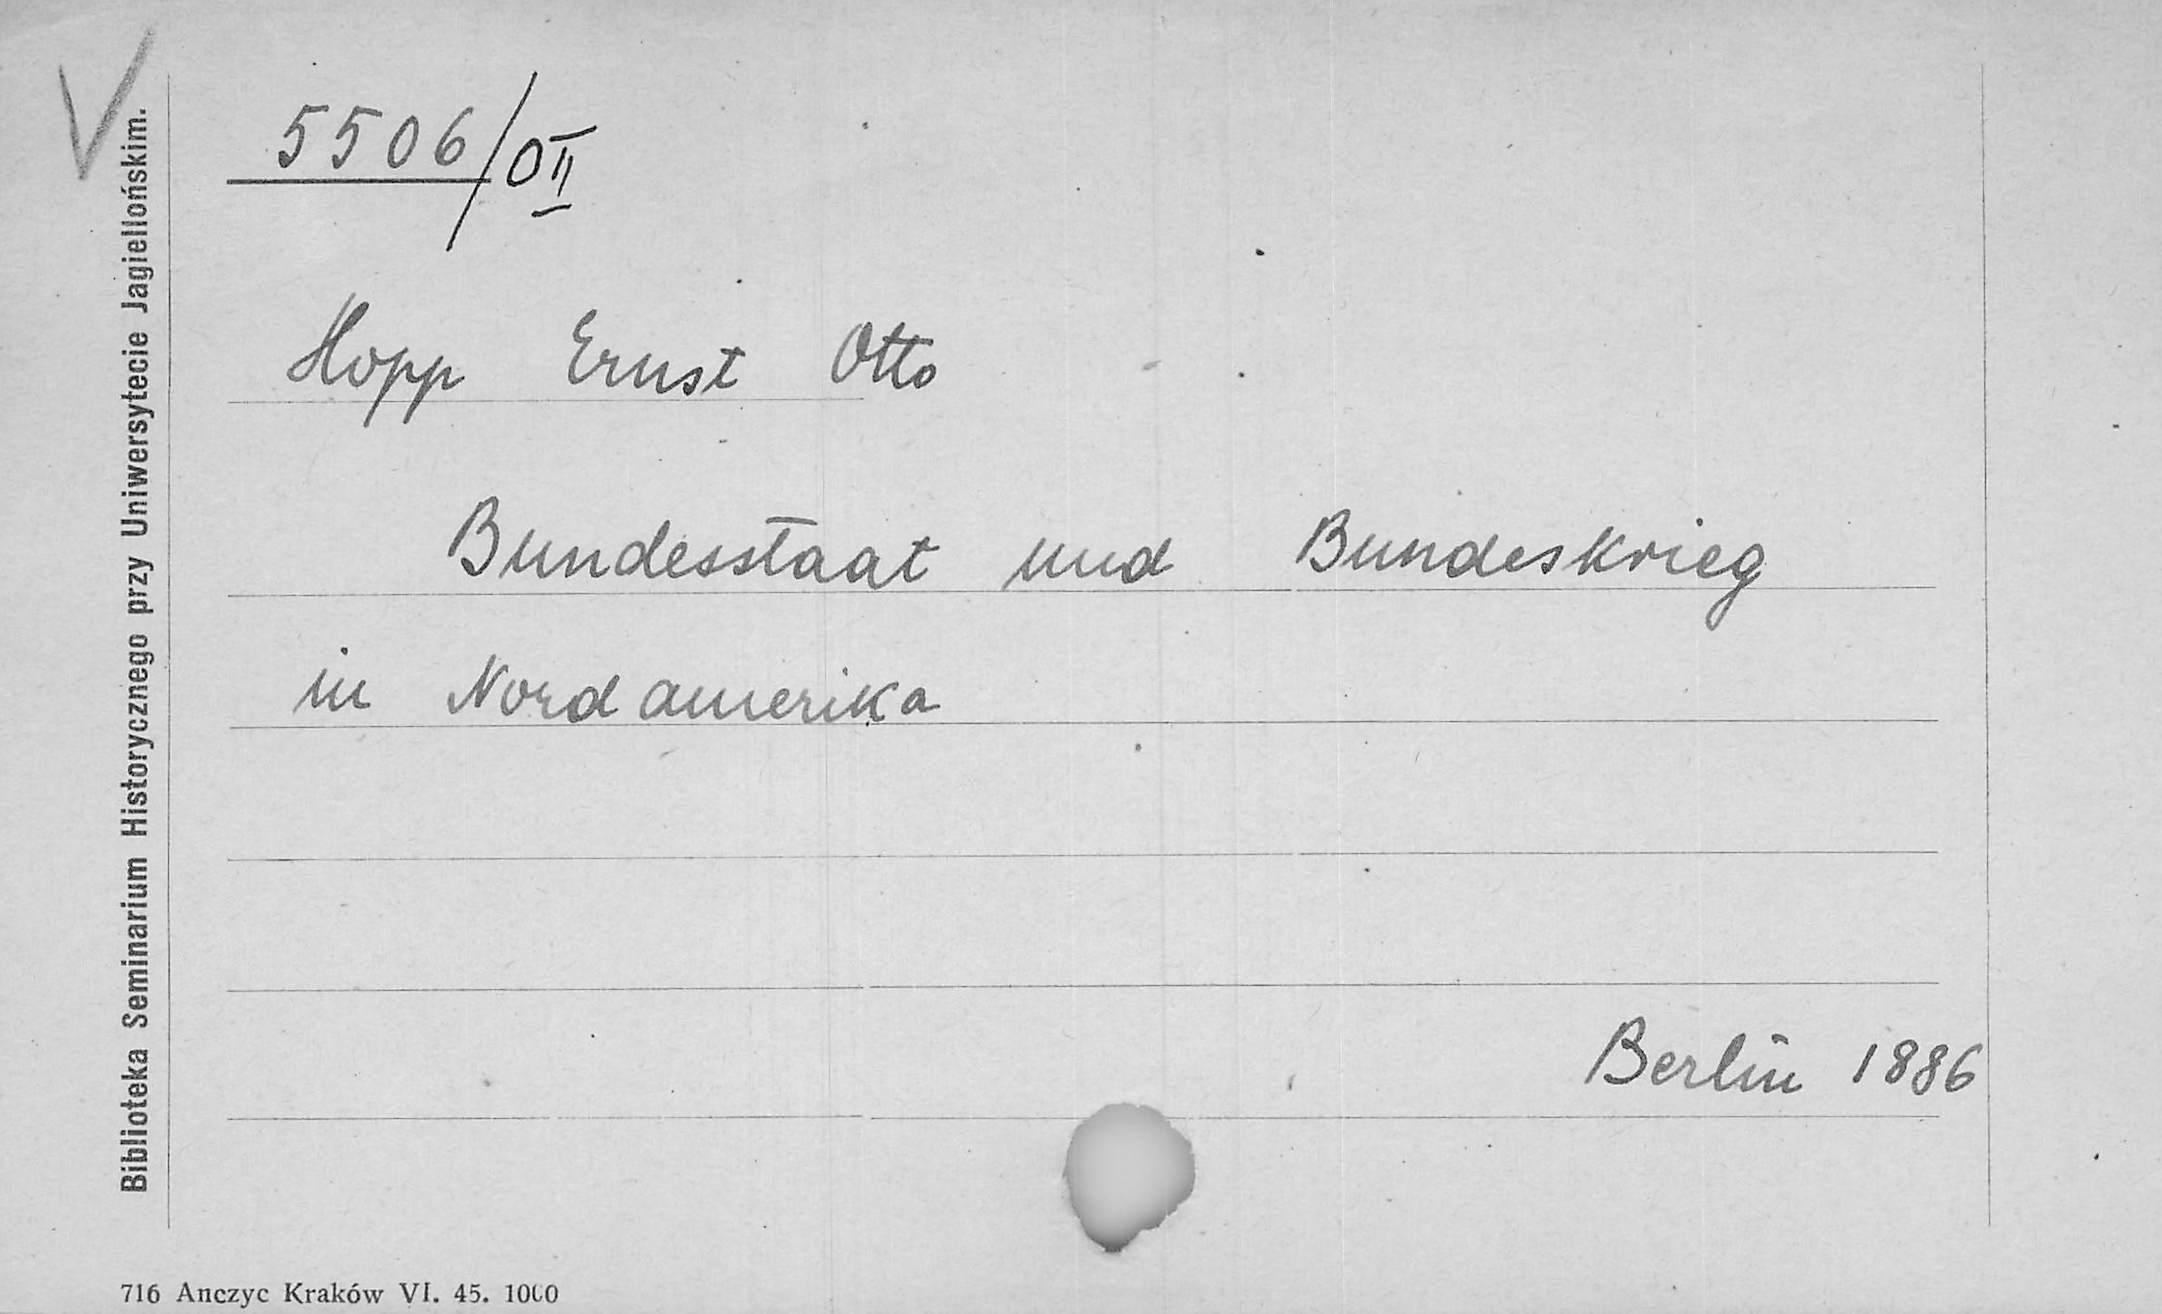 5506/OII
Hopp Ernst Otto
Bundesstaat und Bundeskrieg
in Nordamerika
Berlin 1886
Biblioteka Seminarium Historycznego przy Uniwersytecie Jagiellońskim.
716 Anczyc Kraków VI. 45. 1000